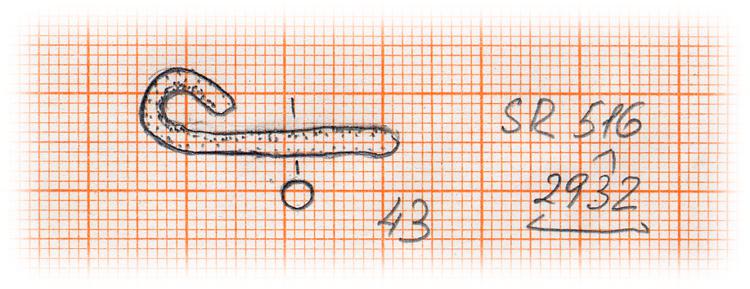 SR 516
2932
43